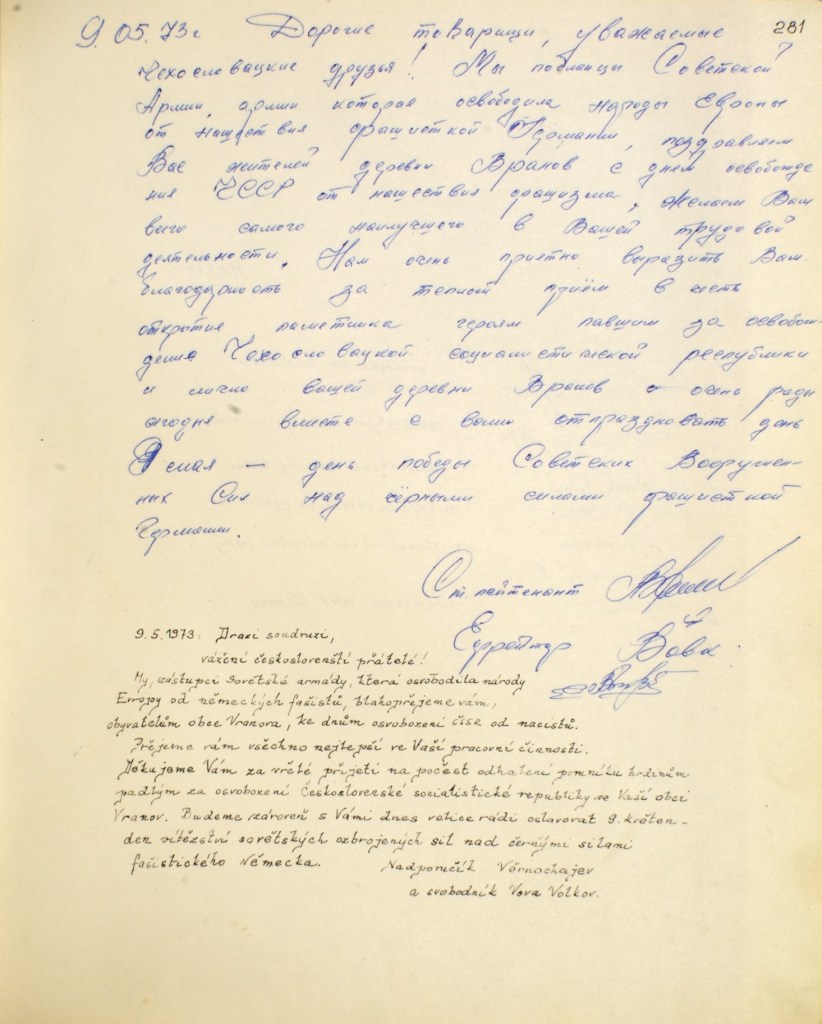 281
9.05.73г Дорогие товарищи, уважаемые
Чехословацкие друзья! Мы посланцы Советской
Армии, армии которая освободила народы Европы
от нашествия фашисткой Германии, поздравляем
Вас жителей деревни Вранов с днем освобожде
ния ЧССР от нашествия фашизма, желаем Вам
всего самого наилучшего в Вашей трудовой
деятельности. Нам очень приетно выразить Вам
благодарность за теплый приём в честь
открытие паметника героям павшим за освобож-
дение Чехословацкой социалистической республики
и лично вашей деревни Вранов и очень рады
сегодня вместе с вами отпраздновать день
9 мая — день победы Советских Вооружен-
ных Сил над чёрными силами фашисткой
Германии.
Ст. лейтенант
Ефрейтор Вова
9.5.1973: Drazí soudruzi,
vážení českoslovenští přátelé!
My, zástupci Sovětské armády, která osvobodila národy
Evropy od německých fašistů, blahopřejeme vám,
obyvatelům obce Vranova, ke dnům osvobození ČSSR od nacistů.
Přejeme vám všechno nejlepší ve Vaší pracovní činnosti.
Děkujeme Vám za vřelé přijetí na počest odhalení pomníku hrdinům
padlým za osvobození Československé socialistické republiky ve Vaší obci
Vranov. Budeme zároveň s Vámi dnes velice rádi oslavovat 9. květen -
den vítězství sovětských ozbrojených sil nad černými silami
fašistického Německa.
Nadporučík Věrnachajev
a svobodník Vova Volkov.